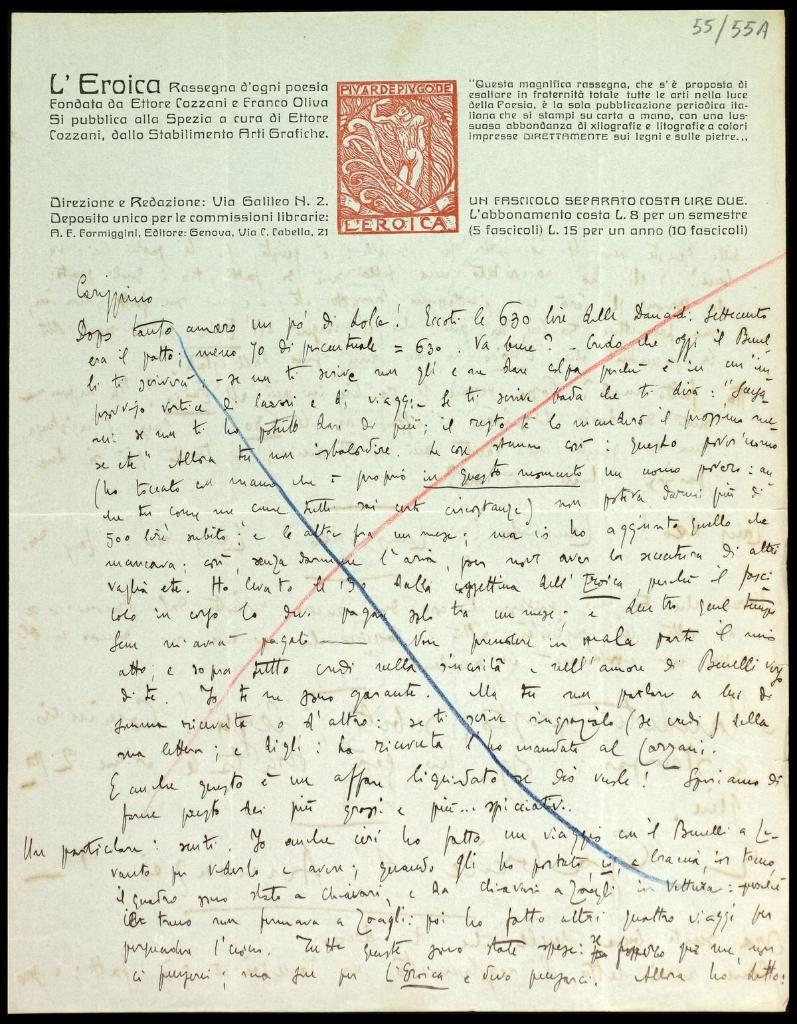 55/55A
L'Eroica Rassegna d'ogni poesia
Fondata da Ettore Cozzani e Franco Oliva
Si pubblica alla Spezia a cura di Ettore
Cozzani, dallo Stabilimento Arti Grafiche.
Direzione e Redazione: Via Galileo N. 2.
Deposito unico per le commissioni librarie:
A. F. Formiggini, Editore: Genova, Via C. Cabella, 21
PIVARDEPIVGODE
L'EROICA
"Questa magnifica rassegna, che s'è proposta di
esaltare in fraternità totale tutte le arti nella luce
della Poesia, è la sola pubblicazione periodica ita-
liana che si stampi su carta a mano, con una lus-
suosa abbondanza di xilografie e litografie a colori
impresse DIRETTAMENTE sui legni e sulle pietre.,,
UN FASCICOLO SEPARATO COSTA LIRE DUE.
L'abbonamento costa L. 8 per un semestre
(5 fascicoli) L. 15 per un anno (10 fascicoli)
Dopo tanto amaro un pó di dolce! Eccoti le 630 lire delle Danaidi. Settecento
era il patto; meno 70 di percentuale = 630. Va bene? - Credo che oggi il Benel
li ti scriverà; - se non ti scrive non gli e ne dare colpa perché è in un
vortice di lavori e di viaggi. Se ti scrive bada che ti dirà: "Scusa
mi se non ti ho potuto dare di più; il resto te lo manderò il prossimo me
se etc" Allora tu non sbalordire. Le cose stanno così: questo pover'uomo
(ho toccato con mano che è proprio in questo momento un uomo povero: an
che tu come me come tutti in certe circostanze) non poteva darmi più di
500 lire subito; e le altre fra un mese; ma io ho aggiunto quello che
mancava; così, senza darmene l'aria, per non aver la seccatura di altri
vaglia etc. Ho levato le 130 dalla cassettina dell'Eroica, perché il fasci
colo in corso lo devo pagare solo tra un mese; e dentro quel tempo
Sem m'avrà pagato — Non prendere in mala parte il mio
atto; e sopra tutto credi nella sincerità e nell'amore di Benelli verso
di te. Io te ne sono garante. Ma tu non parlare a lui di
somma ricevuta o d'altro: se ti scrive ringrazialo (se credi) della
sua lettera; e digli: ho ricevuto l'ho mandato al Cozzani.
E anche questo è un affare liquidato se dio vuole! Speriamo di
farne presto dei più grossi e più... spicciativi.
Un particolare: senti. Io anche ieri ho fatto un viaggio con il Benelli a Le-
vanto per vederlo e avere; quando gli ho portato, io, a braccia, in treno,
il quadro sono stato a Chiavari, e da Chiavari a Zoagli in vettura: perché
il treno non fermava a Zoagli: poi ho fatto altri quattro viaggi per
persuadere l'amico. Tutte queste sono state spese: se fossero per me, non
ci penserei; ma son per L'Eroica e devo pensarci. Allora ho detto: